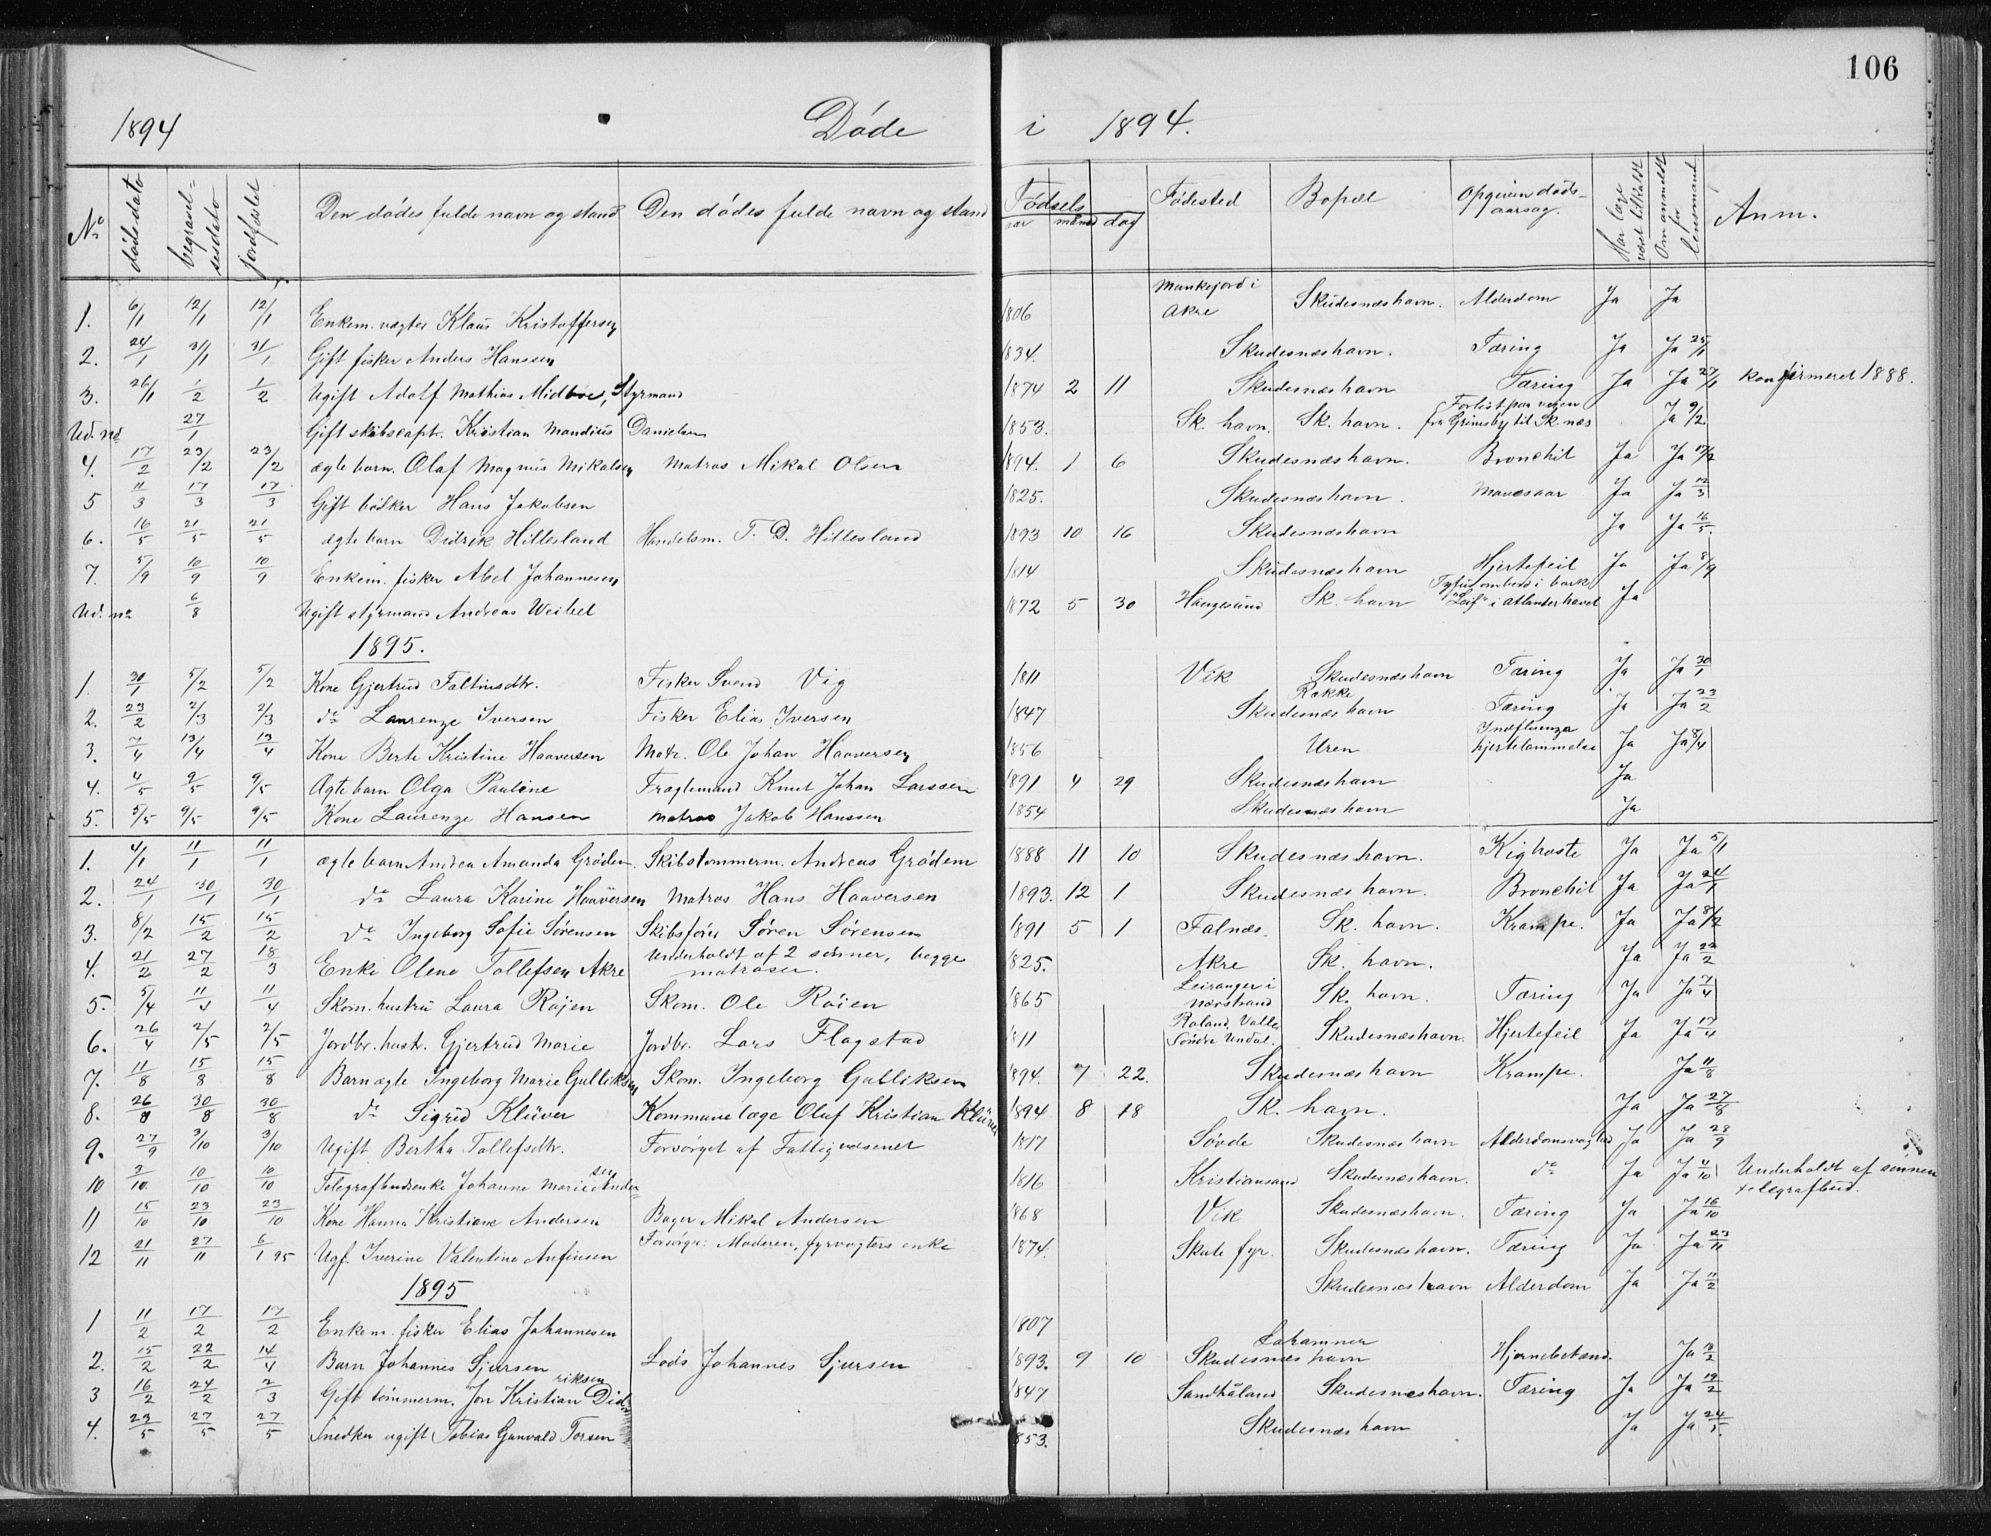 106
1894 Døde i 1894.
No dødsdato begravelsesdato jordfæstet Den dødes fulde navn og stand Den dødes fulde navn og stand Fødsels aar maaned dag Fødested Bopæl Opgiven dødsaarsag. Har læge været tilkaldt Om anmeldt for lensmand Anm.
1. 6/1 12/1 12/1 Enkem. vægter Klaus Kristoffersen 1806 Munkejord i Akre Skudesnæshavn. Alderdom Ja Ja
2. 24/1 31/1 31/1 Gift fisker Anders Hanssen 1834. Skudesnæshavn. Tæring Ja Ja 25/1
3. 26/1 1/2 1/2 Ugift Adolf Mathias Midbøe, Styrmand 1874 2 11 Skudesnæshavn Tæring Ja Ja 27/1 Konfirmeret 1888.
Ud. no 27/1 Gift skibscapt. Kristian Mandius Danielsen 1853. Sk. havn. Sk. havn. Forlist paa veien fra Grimsby til Sk.næs Ja 9/2
4. 17/2 23/2 23/2 ægte barn. Olaf Magnus Mikalsen Matros Mikal Olsen 1894. 1 6 Skudesnæshavn. Bronchit Ja Ja 17/2
5 11/3 17/3 17/3 Gift bødker Hans Jakobsen 1825. Skudesnæshavn. Mavesaar Ja Ja 12/3
6. 16/5 21/5 21/5 ægte barn Didrik Hillesland Handelsm. T. D. Hillesland 1893 10 16 Skudesnæshavn Ja Ja 16/5.
7. 5/9 10/9 10/9 Enkem. fisker Abel Johannesen 1814 Skudesnæshavn Hjertefeil Ja Ja 8/9
Ud. no 6/8 Ugift styrmand Andreas Weibel 1872 5 30 Haugesund Sk. havn Tyfus ombord i bark "Leif" i Atlanterhavet Ja
1895.
1. 30/1 5/2 5/2 Kone Gjertrud Faltinsdtr. Fisker Svend Vig 1811 Vik Skudesnæshavn Tæring Ja Ja 30/1
2. 23/2 2/3 2/3 do Laurenze Iversen Fisker Elias Iversen 1847 Røkke Skudesnæshavn Tæring Ja Ja 23/2
3. 7/4 13/4 13/4 Kone Berte Kristine Haaversen Matr. Ole Johan Haaversen 1856 Uren Indfluenza hjertelammelse Ja Ja 8/4
4. 4/5 9/5 9/5 Ægte barn Olga Pauline Fragtemand Knut Johan Larssen 1891 4 29 Skudesnæshavn Ja
5. 5/5 9/5 9/5 Kone Laurenze Hansen Matros Jakob Hanssen 1854 Skudesnæshavn Ja
1. 4/1 11/1 11/1 ægte barn Andrea Amanda Grødem Skibstømmerm. Andreas Grødem 1888 11 10 Skudesnæshavn. Kighoste Ja Ja 5/1
2. 24/1 30/1 30/1 do Laura Karine Haaversen Matros Hans Haaversen 1893. 12 1 Skudesnæshavn. Bronchit Ja Ja 24/1
3. 8/2 15/2 15/2 do Ingeborg Sofie Sørensen Skibsfører Søren Sørensen 1891 5 1 Falnæs. Sk. havn. Krampe. Ja Ja 8/2
4. 21/2 27/2 18/3 Enke Olene Tollefsen Akre Underholdt af 2 sønner, begge matroser. 1825. Akre Sk. havn. Ja Ja 22/2
5. 5/4 11/4 11/4 Skom. hustru Laura Røien Skom. Ole Røien 1865 Leiranger i Nærstrand Sk. havn. Tæring Ja Ja 7/4
6. 26/4 2/5 2/5 Jordbr. hustr. Gjertrud Marie Jordbr. Lars Flagstad 1811 Roland, Valle Søndre Undal. Skudesnæshavn. Hjertefeil Ja Ja 17/4
7. 11/8 15/8 15/8 Barn ægte Ingeborg Marie Gulliksen Skom. Ingeborg Gulliksen 1894. 7 22. Skudesnæshavn Krampe. Ja 11/8
8. 26/8 30/8 30/8 do Sigrid Klüver Kommunelæge Oluf Kristian Klüver 1894 8 18 Sk. havn. Ja Ja 27/8
9. 27/9 3/10 3/10 Ugift Bertha Tollefsdtr. Forsørget af Fattigvæsenet 1817 Søvde Skudesnæshavn Alderdomsvaghed Ja Ja 28/9
10 3/10 10/10 10/10 Telegrafbudsenke Johanne Marie Andersen 1816 Kristiansand Skudesnæshavn. do Ja Ja 4/10 Underholdt af sønnen telegrafbud.
11 15/10 23/10 23/10 Kone Hanna Kristiane Andersen Bager Mikal Andersen 1868 Vik Skudesnæshavn. Tæring Ja Ja 16/10
12 21/11 27/11 6/1 95 Ugf. Iverine Valentine Anfinsen Forsørger: Moderen, fyrvogters enke 1874. Skute fyr. Skudesnæshavn. Tæring Ja Ja 23/11
1895
1 11/2 17/2 17/2 Enkem. fisker Elias Johannesen 1807 Skudesnæshavn Alderdom Ja Ja 11/2
2. 15/2 22/2 14/4 Barn Johannes Sjursen Lods Johannes Sjursen 1893. 9 10 Lahammer Skudesnæshavn Hjernebetænd. Ja
3 16/2 24/2 2/3 Gift tømmerm. Jon Kristian Didriksen 1847 Sandhåland Skudesnæshavn. Tæring Ja Ja 19/2
4. 23/5 27/5 27/5 Snedker ugift Tobias Gunvald Torsen 1853. Skudesnæshavn Ja Ja 24/5.